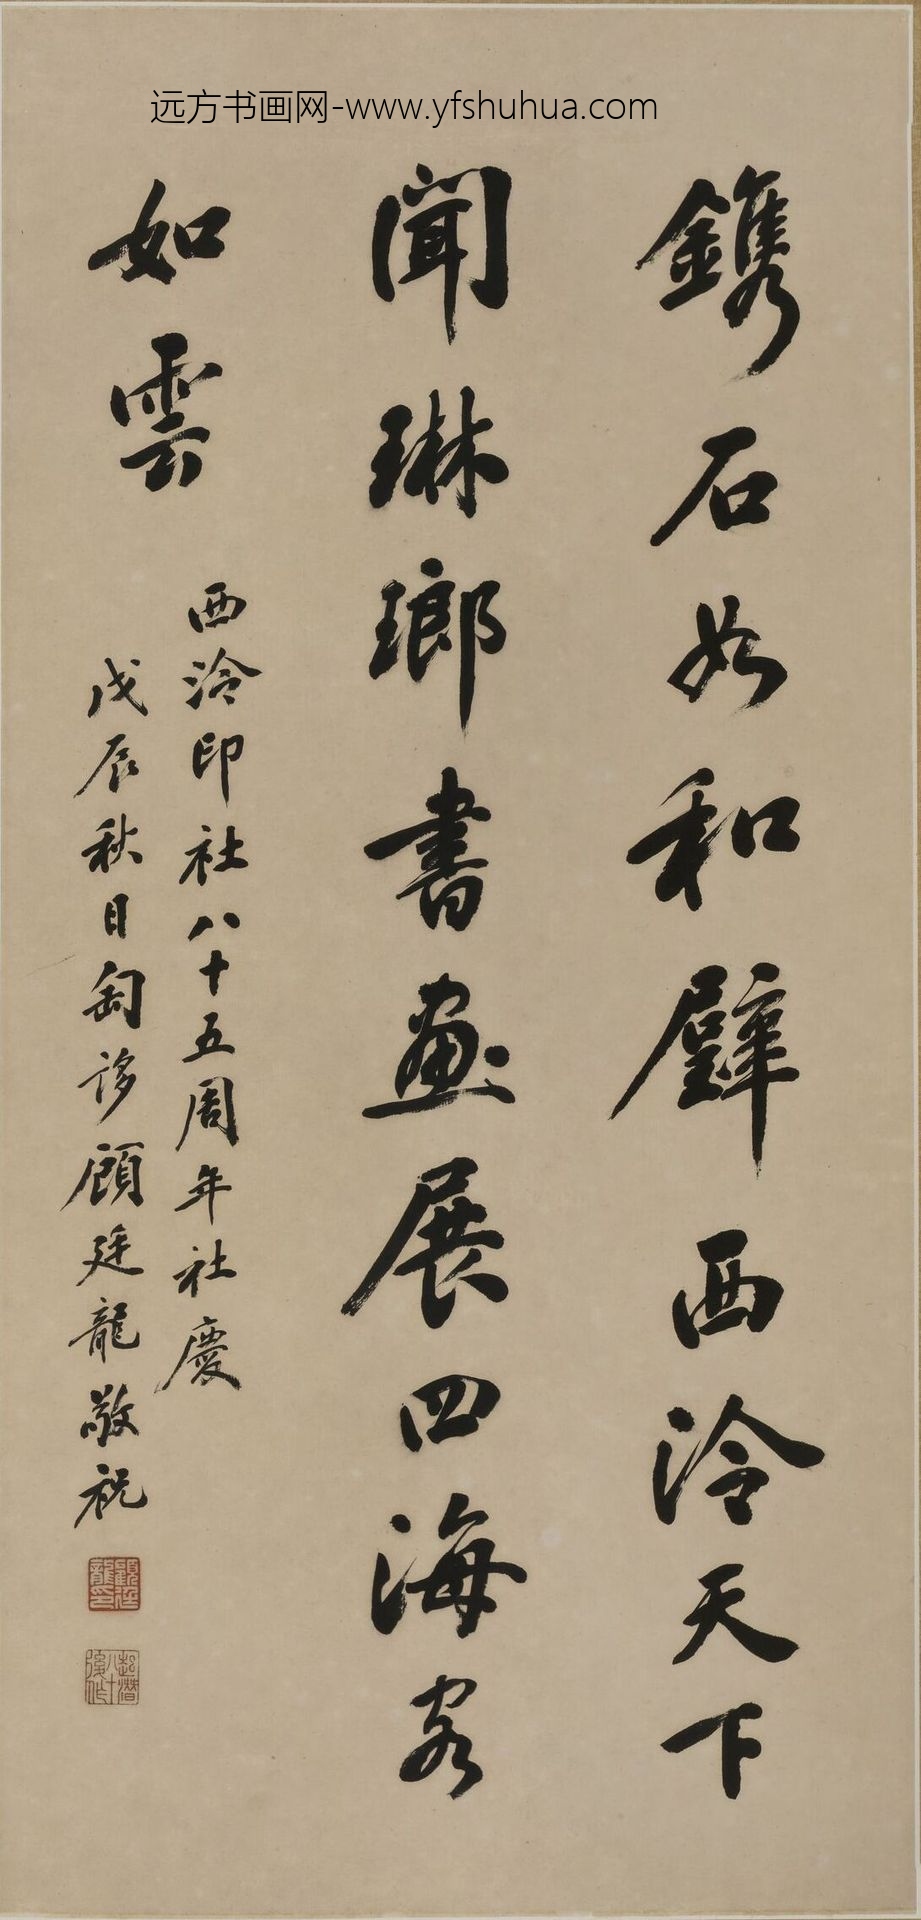 远方书画网-www.yfshuhua.com
鐫石如和璧西泠天下
聞琳瑯書畫展四海客
如雲
西泠印社八十五周年社慶
戊辰秋日匋誃顧廷龍敬祝
顧廷龍印
起潛八十後作